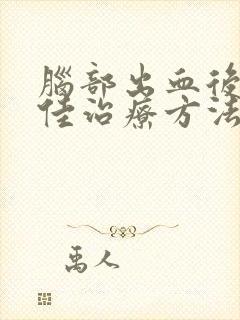 腦部出血後
佳治療方法
禹人